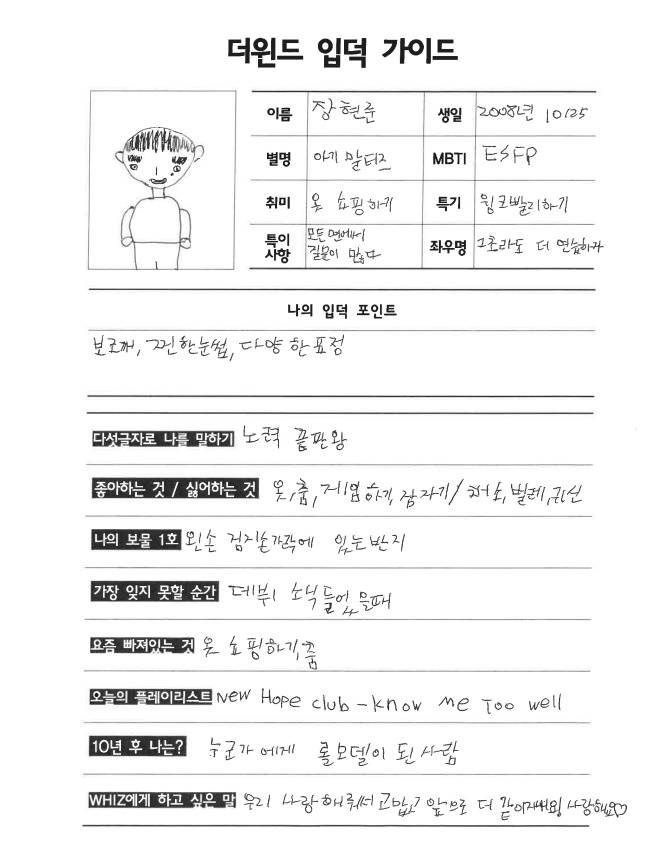 더윈드 입덕 가이드
이름 장현준 생일 2008년 10/25
별명 아기 말티즈 MBTI ESFP
취미 옷 쇼핑하기 특기 윙크빨리하기
특이 사항 모든 면에서 질문이 많다 좌우명 그초라도 더 연습하자
나의 입덕 포인트
보조개, 찐한눈썹, 다양한표정
다섯글자로 나를 말하기 노력 끝판왕
좋아하는 것 / 싫어하는 것 옷, 춤, 게임하기, 잠자기/채소, 벌레, 귀신
나의 보물 1호 왼손 검지손가락에 있는반지
가장 잊지 못할 순간 데뷔 소식 들었을때
요즘 빠져있는 것 옷 쇼핑하기, 춤
오늘의 플레이리스트 New Hope club - know me Too well
10년 후 나는? 누군가에게 롤모델이 된사람
WHIZ에게 하고 싶은 말 우리 사랑해줘서 고맙고 앞으로 더 같이 사랑해요♡